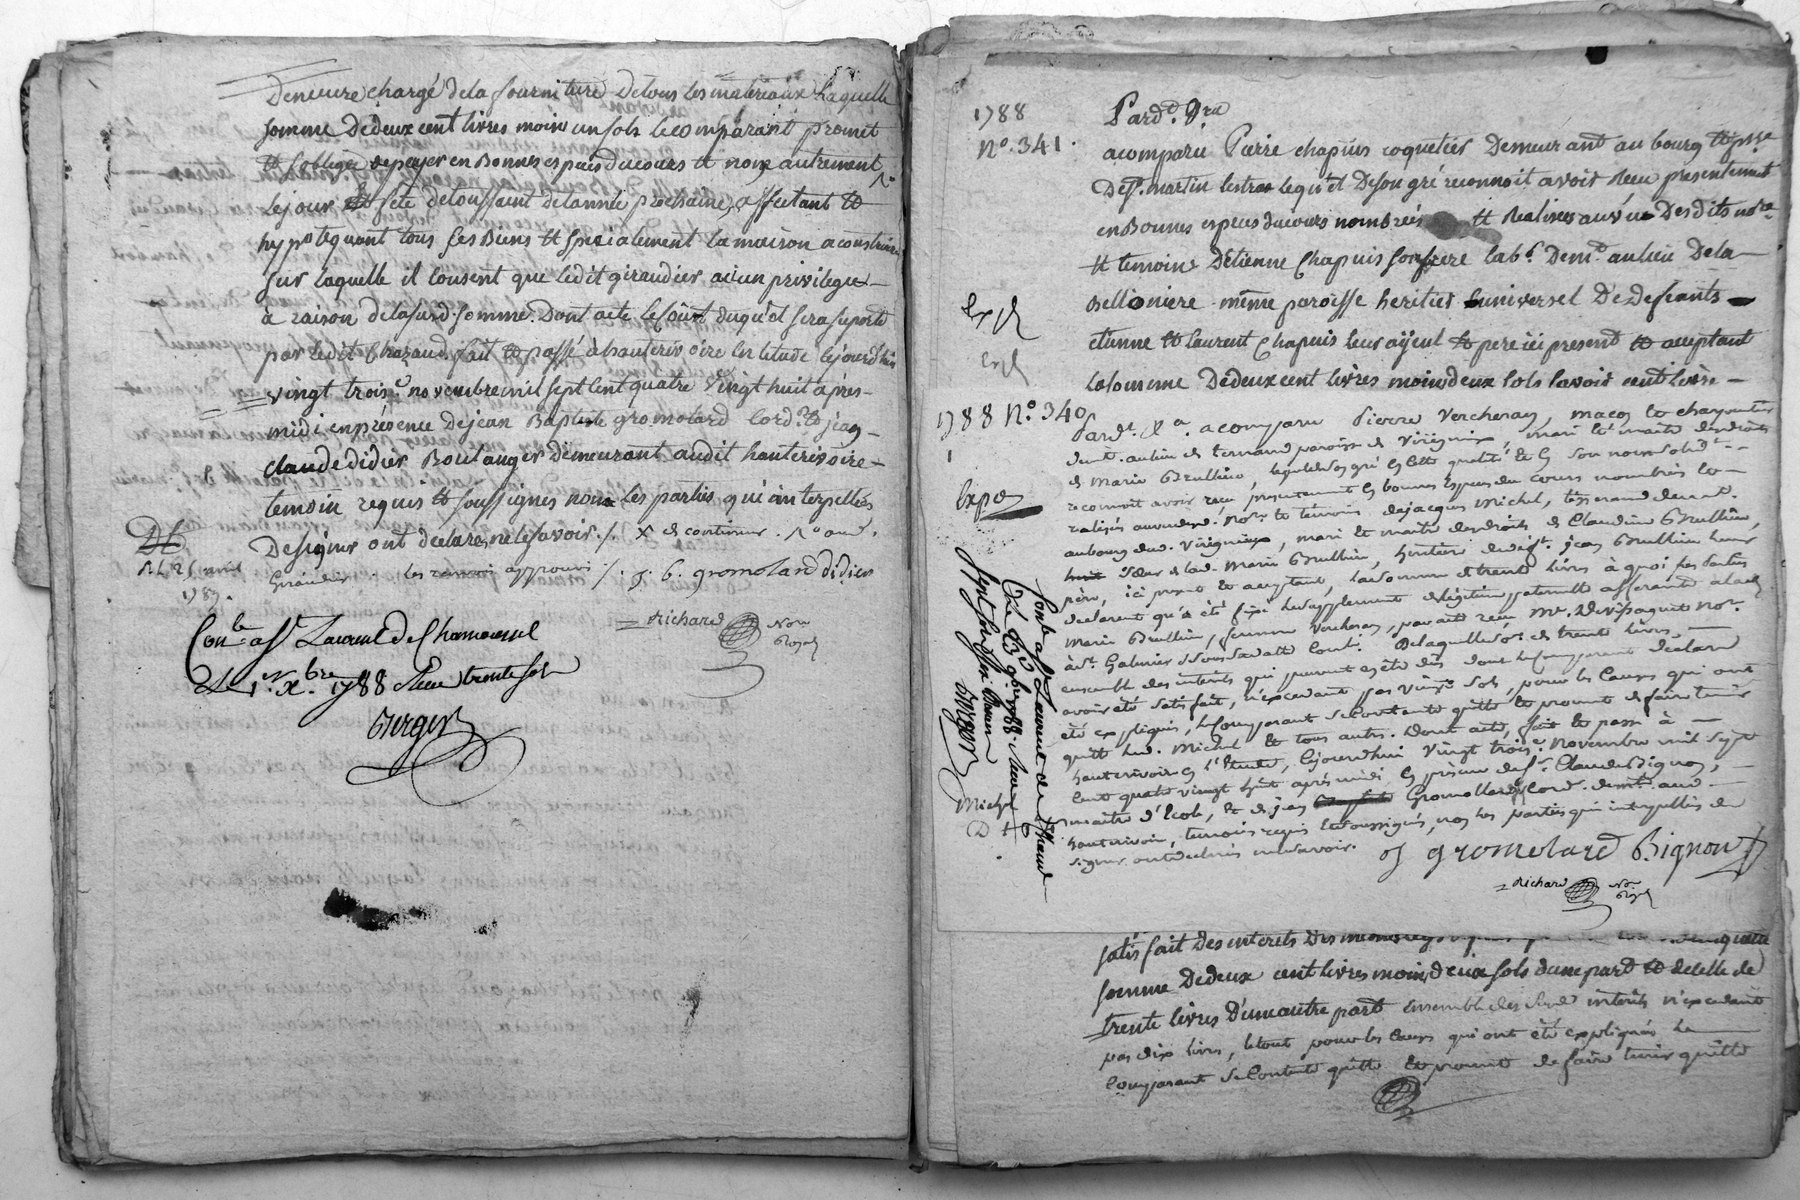 Demeure chargé dela fourniture Detous les materiaux Laquelle
somme Dedeux cent livres moin un sols lecomparant promet
et soblige depayer en Bonnes espais ducours et non autrement
lejour et fete detoussaint delannée prochaine, affectant et
hypotequant tous ses Biens et specialement la maison aconstruire
sur laquelle il consent que ledit giraudier ai un privilege
a raison deladte somme. Dont acte
par ledit Chazaud, fait et passé à hauterivoire en letude lejourdhui
vingt trois.e novembre mil sept cent quatre vingt huit après
midi en présence Dejean Baptiste gromolard cord.r et jean
claude didier Boulanger demeurant audit hauterivoire
temoin requis et soussignes non les parties qui interpellés
Designer ont declarés nelesavoir ./. X et continue
Giraudier les renvois approuvé ./. j. b. gromolard didier
Richard Not.re Royal
1789.
Con.le ass.t Laurent de Chamousset
Le 1.er X.bre 1788 Reçu trente sols
Verger
1788
N.o 341.
Pard.t 9ra
acomparu Pierre chapuis coquetier Demeurant au bourg et p.sse
Des.t martin lestras lequel Deson gré reconnoit avoir Reçu presentement
en Bonnes especes ducours nombrées et Realisées auvu Desdits not.re
et temoins D'etienne Chapuis son frere lab.r Dem.t aulieu Dela
Bellioniere même paroisse heritier universel De defeants
etienne et laurent Chapuis leur ayeul et pere ici present et acceptant
lasomme Dedeux cent livres moin deux sols savoir cent livres
Exp.d
1788 N.o 340
Pard.t acomparu Pierre Vercheray, maçon et charpentier
dem.t aulieu de ternand paroisse de Virigneux, mari et maitre desdroits
de Marie Brullieu, lequel de son gré en cette qualité et en son nom
reconnoit avoir reçu presentement en bonnes especes du cours nombrés et
realisés auvu desd. not.re et temoins dejacques Michel, tisserand dem.t
aubourg dud. Virigneux, mari et maitre desdroits de Claudine Brullieu,
sœur de lad. Marie Brullieu, heritiere dud. jean Brullieu leur
père, ici present et acceptant, la somme de trente livres à quoi les parties
declarent qu'a été fixé le supplement de legitime paternelle afferant a lad.
Marie Brullieu, femme Vercheray, par acte reçu M.e Devissaguet not.re
à S.t Galmier Delaquelle somme de trente livres
ensemble des interets qui peuvent en être dus dont le comparant declare
avoir été satisfait, n'excedant pas vingt sols, pour les causes qui ont
été expliqués, le comparant se contente quitte et promet de faire tenir
quitte led. Michel et tous autres. Dont acte, fait et passé à
hauterivoire en l'étude, cejourdhui vingt trois.e novembre mil sept
cent quatre vingt huit après midi, en presence de s.r Claude Bignon,
maitre d'Ecole, et de jean Gromollard cord. dem.t aud.
hauterivoire, temoins requis et soussignés, non les parties qui interpellés de
signer ont declaré ne le savoir. j gromolard Bignon
Richard Not.re Royal
Exp.d
Contle ass.t Laurent de Chamousset
Le 1788. Reçu
Verger
Michel
satisfait Des interets
somme Dedeux cent livres moin deux sols dune part et decelle de
trente livres D'eune autre part ensemble des susd interets n'excedant
pas dix livres, letout pour les causes qui ont été expliquées le
comparant se contente quitte et promet de faire tenir quitte